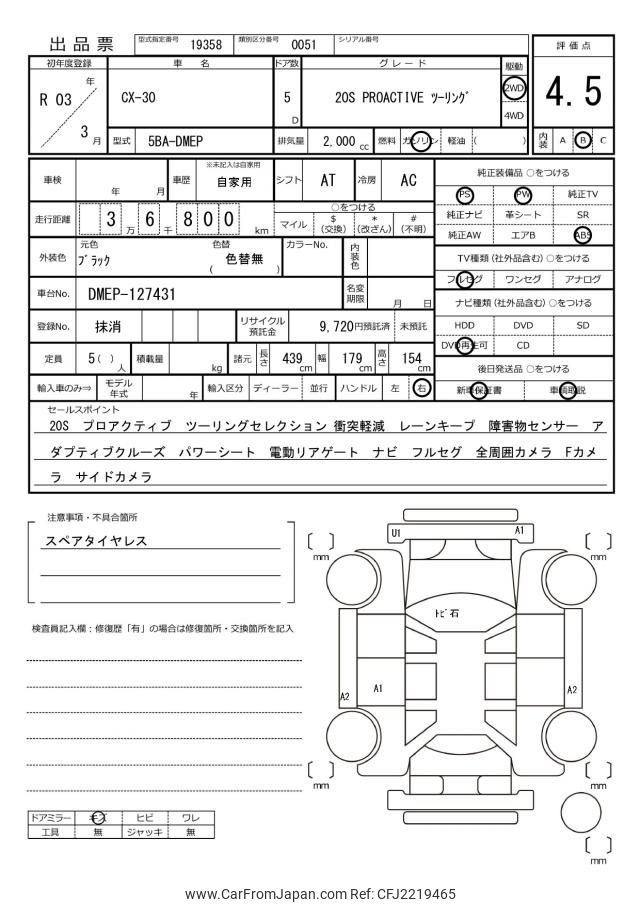 出品票 型式指定番号 19358 類別区分番号 0051 シリアル番号
評価点
4.5
初年度登録 車名 ドア数 グレード 駆動
R 03 年 3 月 CX-30 5 D 20S PROACTIVE ツーリング 2WD 4WD
型式 5BA-DMEP 排気量 2,000 cc 燃料 ガソリン 軽油 ( ) 内装 A B C
車検 年 月 車歴 ※未記入は自家用 自家用 シフト AT 冷房 AC
純正装備品 ○をつける
PS PW 純正TV
純正ナビ 革シート SR
純正AW エアB ABS
走行距離 3 6 8 0 0 万 千 km
○をつける
マイル $ (交換) * (改ざん) # (不明)
外装色 元色 ブラック 色替 ( 色替無 ) カラーNo. 内装色
TV種類 (社外品含む) ○をつける
フルセグ ワンセグ アナログ
車台No. DMEP-127431 名変期限 月 日
ナビ種類 (社外品含む) ○をつける
HDD DVD SD
DVD再生可 CD
登録No. 抹消 リサイクル預託金 9,720円預託済 未預託
定員 5 ( ) 人 積載量 kg 諸元 長さ 439 cm 幅 179 cm 高さ 154 cm
後日発送品 ○をつける
新車保証書 車輌取説
輸入車のみ⇒ モデル年式 年 輸入区分 ディーラー 並行 ハンドル 左 右
セールスポイント
20S プロアクティブ ツーリングセレクション 衝突軽減 レーンキープ 障害物センサー ア
ダプティブクルーズ パワーシート 電動リアゲート ナビ フルセグ 全周囲カメラ Fカメ
ラ サイドカメラ
注意事項・不具合箇所
スペアタイヤレス
検査員記入欄：修復歴「有」の場合は修復箇所・交換箇所を記入
U1 A1
mm mm
トビ石
A2 A1 A2
mm mm
mm
ドアミラー キズ ヒビ ワレ
工具 無 ジャッキ 無
www.CarFromJapan.com Ref: CFJ2219465